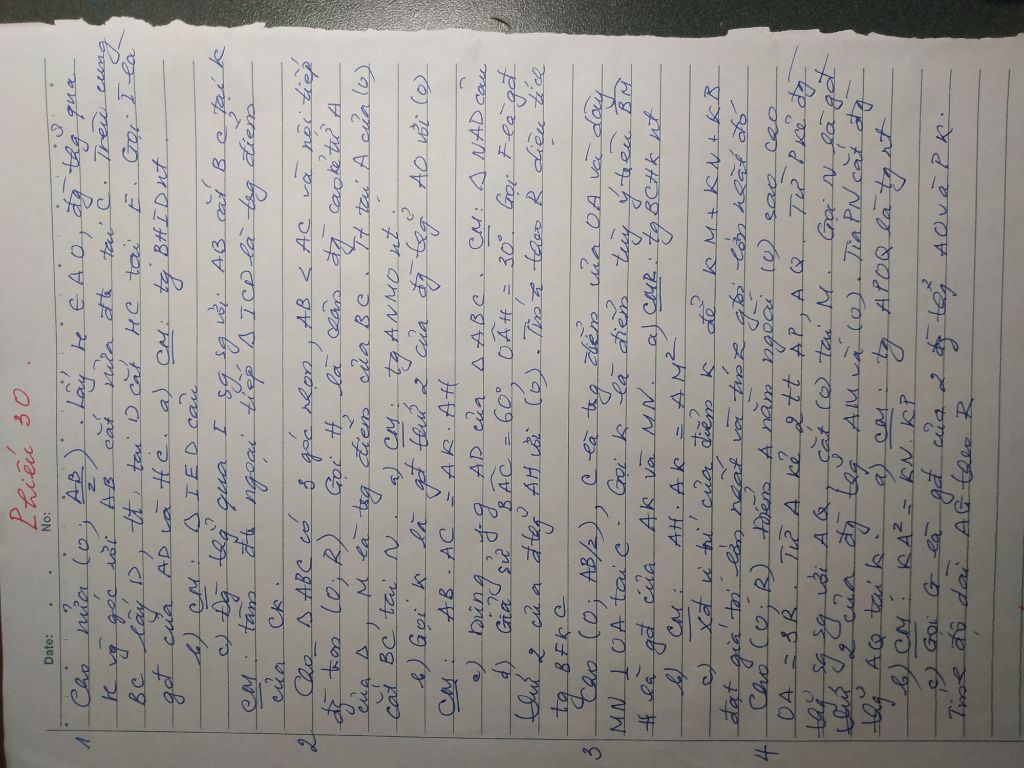 Phiếu 30.
Date: No:
1 Cho nửa (O; AB/2). Lấy H ∈ AO, đg thg qua
H vg góc với AB cắt nửa đtr tại C. Trên cung
BC lấy D, tt tại D cắt HC tại E. Gọi I là
gđ của AD và HC. a) CM: tg BHID nt
b) CM: Δ IED cân
c) Đg thg qua I sg sg với AB cắt BC tại K
CM: tâm đtr ngoại tiếp Δ ICD là tg điểm
của CK.
2 Cho Δ ABC có 3 góc nhọn, AB < AC và nội tiếp
đg tròn (O; R) Gọi H là chân đg cao kẻ từ A
của Δ, M là tg điểm của BC. tt tại A của (O)
cắt BC tại N. a) CM: tg ANMO nt.
b) Gọi K là gđ thứ 2 của đg thg AO với (O)
CM: AB.AC = AK.AH
c) Dựng p.g AD của Δ ABC. CM: Δ NAD cân
d) Giả sử BAC = 60°, OAH = 30°. Gọi F là gđ
thứ 2 của đthg AH với (O). Tính theo R diện tích
tg BFKC
3 Cho (O, AB/2), C là tg điểm của OA và dây
MN ⊥ OA tại C. Gọi K là điểm tùy ý trên BM
H là gđ của AK và MN. a) CMR: tg BCHK nt
b) CM: AH.AK = AM²
c) Xđ vị trí của điểm K để KM + KN + KB
đạt giá trị lớn nhất và tính giá trị lớn nhất đó
4 Cho (O; R) điểm A nằm ngoài (O) sao cho
OA = 3R Từ A kẻ 2 tt AP, AQ. Từ P kẻ đg
thg sg sg với AQ, cắt (O) tại M. Gọi N là gđ
thứ 2 của đg thg AM và (O). Tia PN cắt đg
thg AQ tại K. a) CM: tg APOQ là tg nt
b) CM: KA² = KN.KP
c) Gọi G là gđ của 2 đg thg AO và PK.
Tính độ dài AG theo R